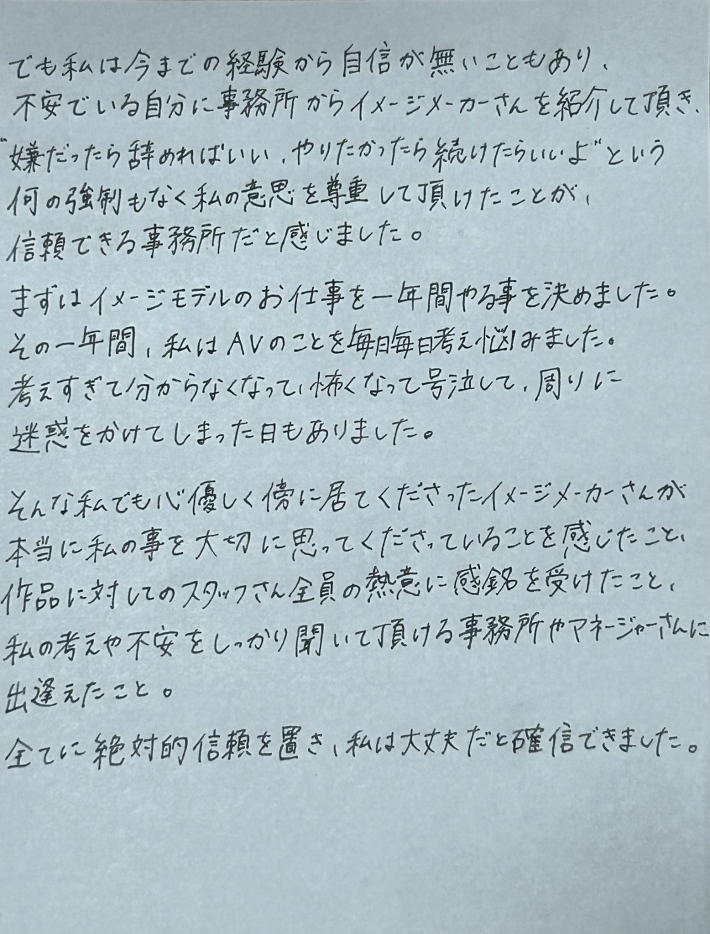 でも私は今までの経験から自信が無いこともあり、
不安でいる自分に事務所からイメージメーカーさんを紹介して頂き、
"嫌だったら辞めればいい、やりたかったら続けたらいいよ"という
何の強制もなく私の意思を尊重して頂けたことが、
信頼できる事務所だと感じました。
まずはイメージモデルのお仕事を一年間やる事を決めました。
その一年間、私はAVのことを毎日毎日考え悩みました。
考えすぎて分からなくなって、怖くなって号泣して、周りに
迷惑をかけてしまった日もありました。
そんな私でも心優しく傍に居てくださったイメージメーカーさんが
本当に私の事を大切に思ってくださっていることを感じたこと、
作品に対してのスタッフさん全員の熱意に感銘を受けたこと、
私の考えや不安をしっかり聞いて頂ける事務所やマネージャーさんに
出逢えたこと。
全てに絶対的信頼を置き、私は大丈夫だと確信できました。